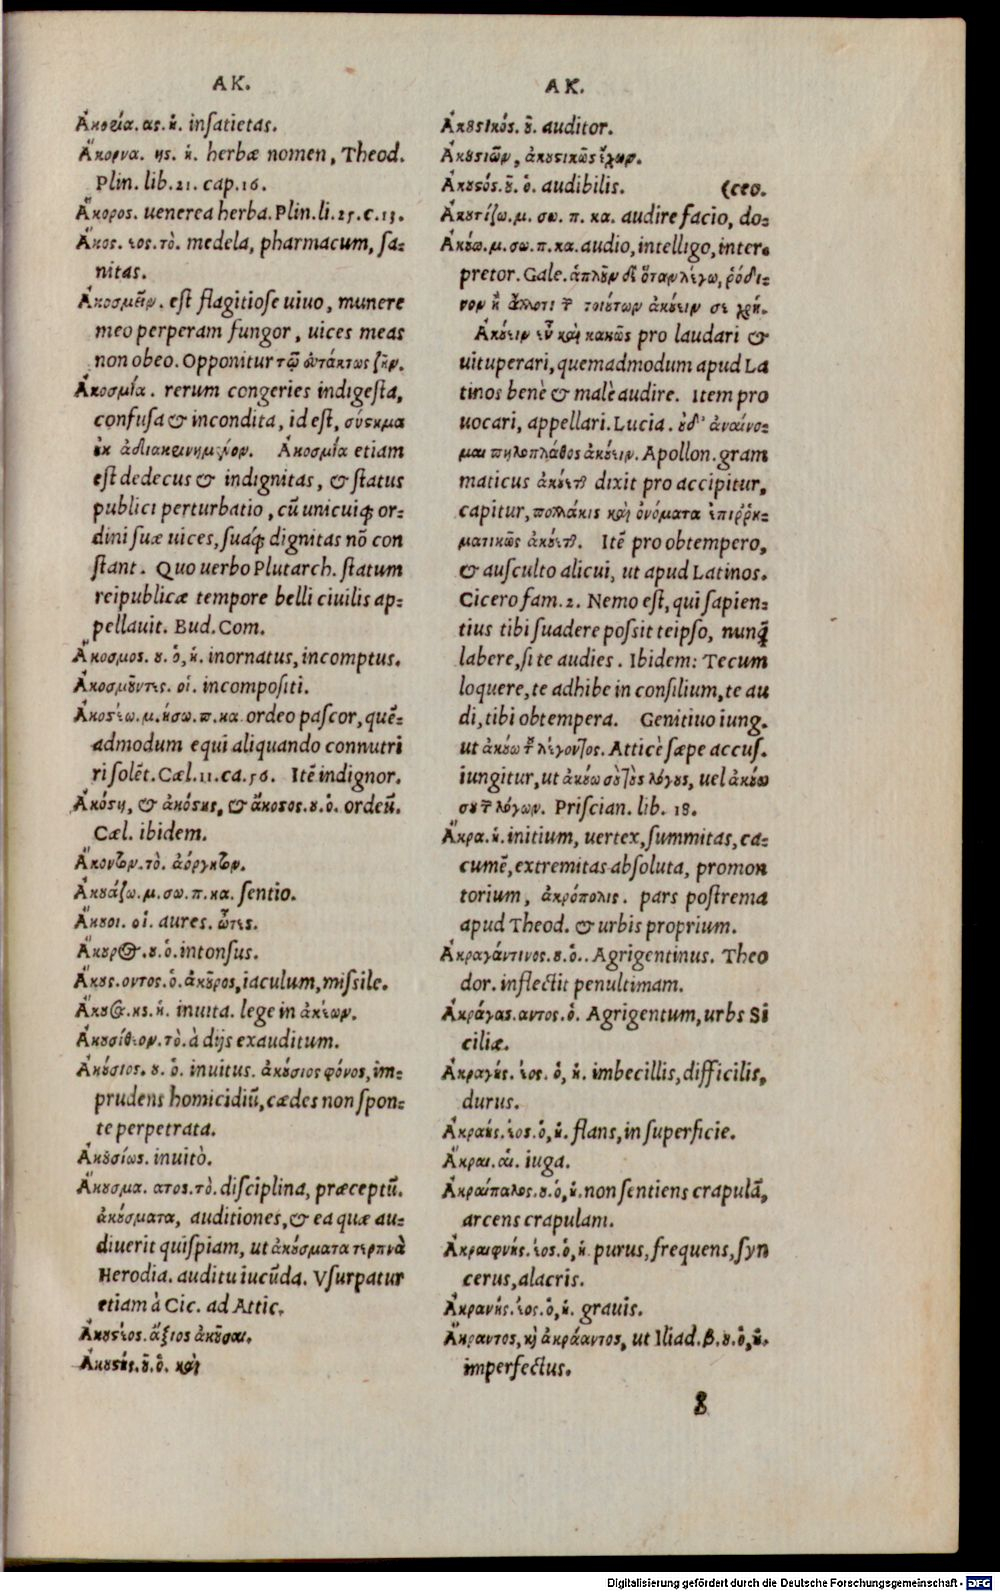 AK.
Ἀκορία. ας. ἡ. insatietas.
Ἄκορνα. ης. ἡ. herbæ nomen, Theod.
Plin. lib. 21. cap. 16.
Ἄκορος. uenerea herba. Plin. li. 25. c. 13.
Ἄκος. εος. τὸ. medela, pharmacum, sa-
nitas.
Ἀκοσμεῖν. est flagitiose uiuo, munere
meo perperam fungor, uices meas
non obeo. Opponitur τῷ εὐτάκτως ζῆν.
Ἀκοσμία. rerum congeries indigesta,
confusa & incondita, id est, σύστημα
οὐκ ἀδιακεκριμένον. Ἀκοσμία etiam
est dedecus & indignitas, & status
publici perturbatio, cũ unicuiq; or-
dini suæ uices, suáq; dignitas nõ con
stant. Quo uerbo Plutarch. statum
reipublicæ tempore belli ciuilis ap-
pellauit. Bud. Com.
Ἄκοσμος. ου. ὁ, ἡ. inornatus, incomptus.
Ἀκοσμοῦντες. οἱ. incompositi.
Ἀκοστέω. μ. ήσω. π. κα. ordeo pascor, quẽ-
admodum equi aliquando connutri
ri solẽt. Cæl. 11. ca. 56. Itẽ indignor.
Ἀκόστη, & ἀκόστης, & ἄκοστος. ου. ὁ. ordeũ.
Cæl. ibidem.
Ἄκουτον. τὸ. ἀόργητον.
Ἀκουάζω. μ. σω. π. κα. sentio.
Ἄκουοι. οἱ. aures. ὦτες.
Ἄκουρος. ου. ὁ. intonsus.
Ἄκους. οντος. ὁ. ἀκοῦρος, iaculum, missile.
Ἄκουσα. ης. ἡ. inuita. lege in ἀκέων.
Ἀκουσίθεον. τὸ. à dijs exauditum.
Ἀκούσιος. ου. ὁ. inuitus. ἀκούσιος φόνος, im-
prudens homicidiũ, cædes non spon-
te perpetrata.
Ἀκουσίως. inuitò.
Ἄκουσμα. ατος. τὸ. disciplina, præceptũ.
ἀκούσματα, auditiones, & ea quæ au-
diuerit quispiam, ut ἀκούσματα τερπνὰ
Herodia. auditu iucũda. Vsurpatur
etiam à Cic. ad Attic.
Ἀκουστέος. ἄξιος ἀκοῦσαι.
Ἀκουστής. οῦ. ὁ. καὶ
AK.
Ἀκουστικός. οῦ. auditor.
Ἀκουστιῶν, ἀκουστικῶς ἔχων.
Ἀκουστός. οῦ. ὁ. audibilis. (ceo.
Ἀκουτίζω. μ. σω. π. κα. audire facio, do-
Ἀκούω. μ. σω. π. κα. audio, intelligo, inter-
pretor. Gale. ἁπλοῦν δὲ ὅταν λέγω, ῥόδι-
νον ἢ ἄλλοτι τῶν τοιούτων ἀκούειν σε χρή.
Ἀκούειν εὖ καὶ κακῶς pro laudari &
uituperari, quemadmodum apud La
tinos benè & malè audire. Item pro
uocari, appellari. Lucia. οὐδ' ἀναίνο-
μαι πηλοπλάθος ἀκούειν. Apollon. gram
maticus ἀκούεται dixit pro accipitur,
capitur, πολλάκις καὶ ὀνόματα ἐπιῤῥη-
ματικῶς ἀκούεται. Itẽ pro obtempero,
& ausculto alicui, ut apud Latinos.
Cicero fam. 2. Nemo est, qui sapien-
tius tibi suadere possit teipso, nunq̃
labere, si te audies. Ibidem: Tecum
loquere, te adhibe in consilium, te au
di, tibi obtempera. Genitiuo iung.
ut ἀκούω τοῦ λέγοντος. Atticè sæpe accus.
iungitur, ut ἀκούω σοὺς τοὺς λόγους, uel ἀκούω
σου τῶν λόγων. Priscian. lib. 18.
Ἄκρα. ἡ. initium, uertex, summitas, ca-
cumẽ, extremitas absoluta, promon
torium, ἀκρόπολις. pars postrema
apud Theod. & urbis proprium.
Ἀκραγάντινος. ου. ὁ.. Agrigentinus. Theo
dor. inflectit penultimam.
Ἀκράγας. αντος. ὁ. Agrigentum, urbs Si
ciliæ.
Ἀκραγής. έος. ὁ, ἡ. imbecillis, difficilis,
durus.
Ἀκραής. έος. ὁ, ἡ. flans, in superficie.
Ἄκραι. αἱ. iuga.
Ἀκραίπαλος. ου. ὁ, ἡ. non sentiens crapulã,
arcens crapulam.
Ἀκραιφνής. έος. ὁ, ἡ. purus, frequens, syn
cerus, alacris.
Ἀκρανής. έος. ὁ, ἡ. grauis.
Ἄκραντος, καὶ ἀκράαντος, ut Iliad. β. ου. ὁ, ἡ.
imperfectus.
8
Digitalisierung gefördert durch die Deutsche Forschungsgemeinschaft - DFG